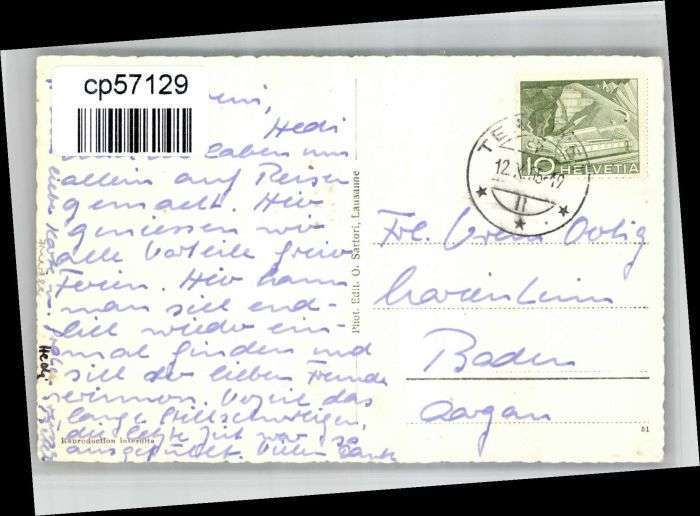 cp57129
Hedi
haben uns
allein auf Reisen
gemacht. Hier
geniessen wir
alle Vorteile freier
Ferien. Hier kann
man sich end-
lich wieder ein-
mal finden und
sich der lieben Freunde
erinnern. Verzeih das
lange Stillschweigen,
die letzte Zeit war so
ausgefüllt. Vielen Dank
Hedi
Reproduction interdite
Phot. Edit. O. Sartori, Lausanne
10 HELVETIA
12.
Frl. Vreni
Baden
Aargau
51